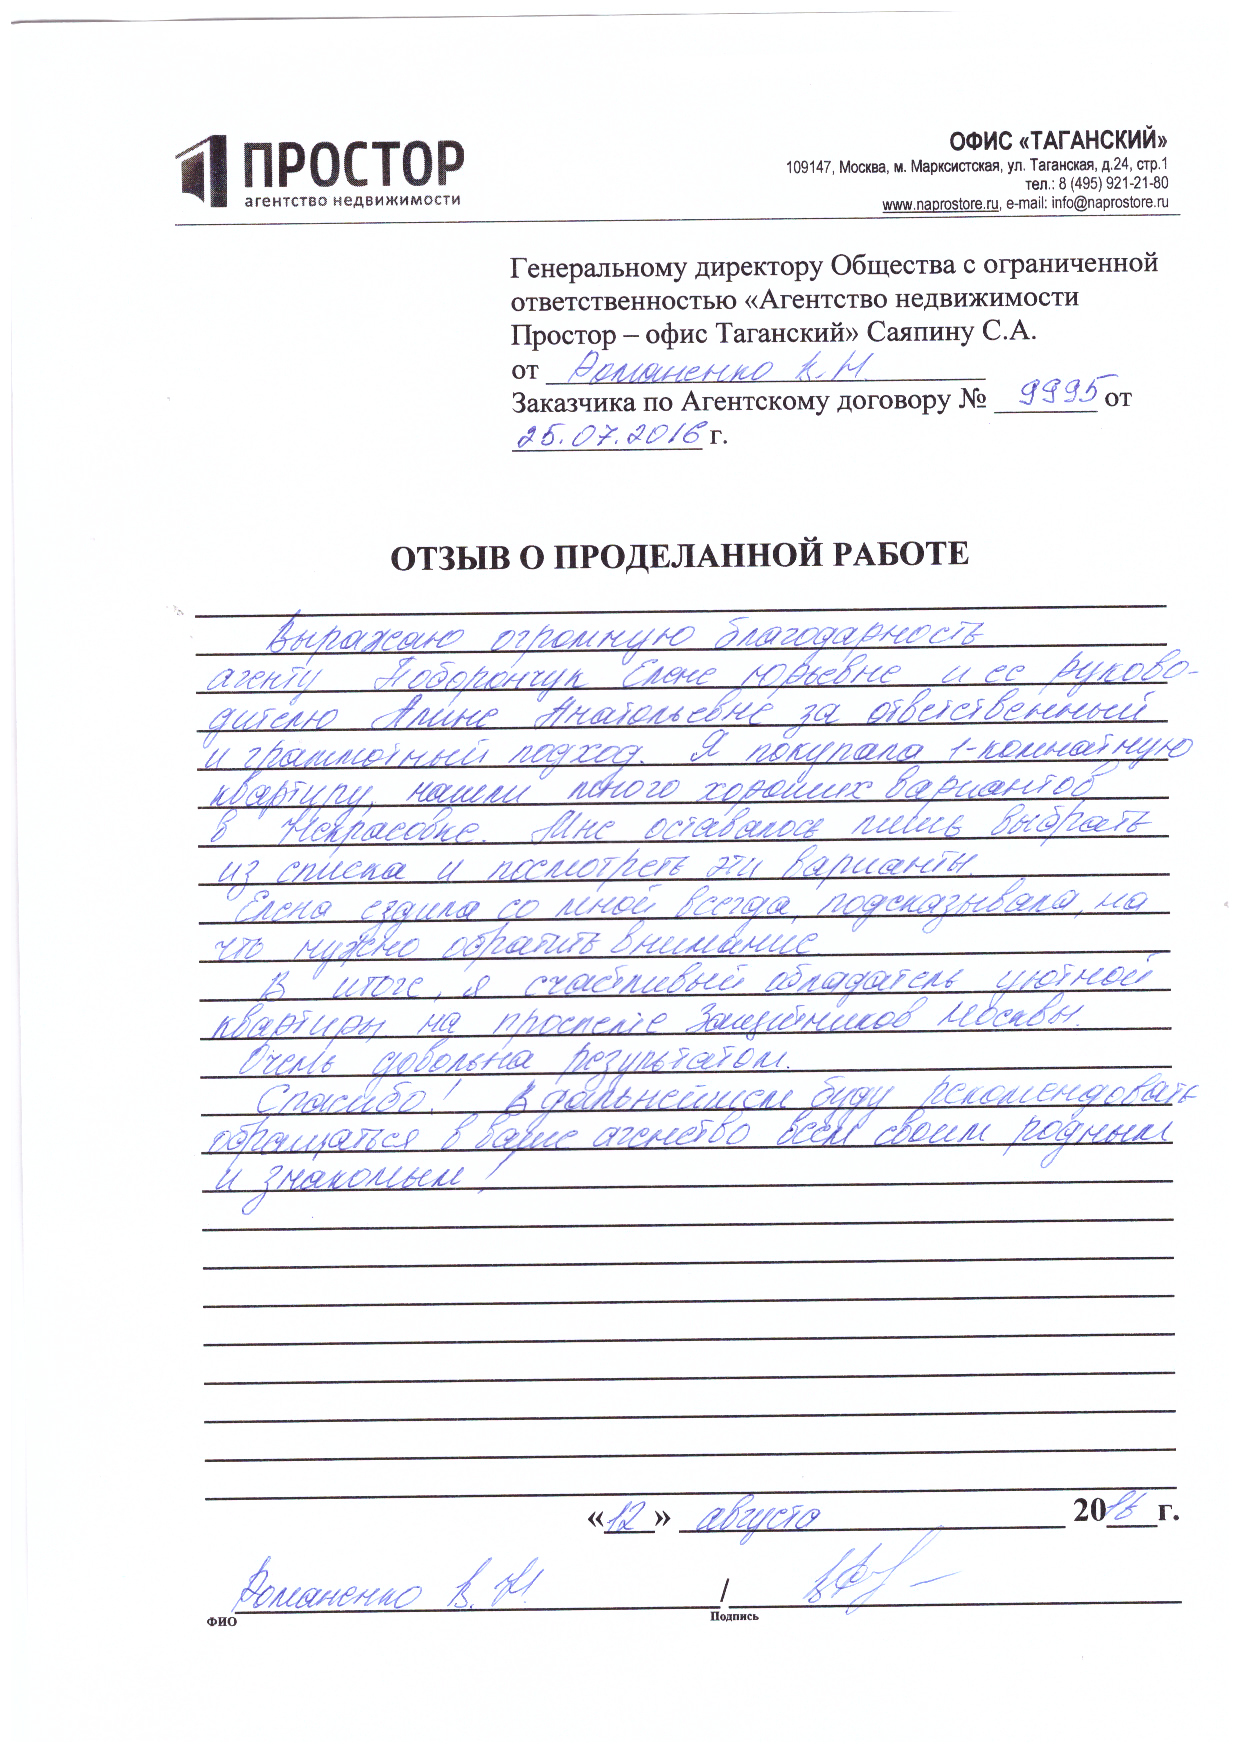 ПРОСТОР
агентство недвижимости
ОФИС «ТАГАНСКИЙ»
109147, Москва, м. Марксистская, ул. Таганская, д.24, стр.1
тел.: 8 (495) 921-21-80
www.naprostore.ru, e-mail: info@naprostore.ru
Генеральному директору Общества с ограниченной
ответственностью «Агентство недвижимости
Простор – офис Таганский» Саяпину С.А.
от Романенко В.Н.
Заказчика по Агентскому договору № 9995 от
25.07.2016 г.
ОТЗЫВ О ПРОДЕЛАННОЙ РАБОТЕ
Выражаю огромную благодарность
агенту Поборончук Елене Юрьевне и ее руково-
дителю Алине Анатольевне за ответственный
и граммотный подход. Я покупала 1-комнатную
квартиру, нашли много хороших вариантов
в Некрасовке. Мне оставалось лишь выбрать
из списка и посмотреть эти варианты.
Елена ездила со мной всегда, подсказывала, на
что нужно обратить внимание.
В итоге, я счастливый обладатель уютной
квартиры на проспекте Защитников Москвы.
Очень довольна результатом.
Спасибо! В дальнейшем буду рекомендовать
обращаться в ваше агенство всем своим родным
и знакомым!
«12» августа 2016 г.
Романенко В.Н. /
ФИО Подпись